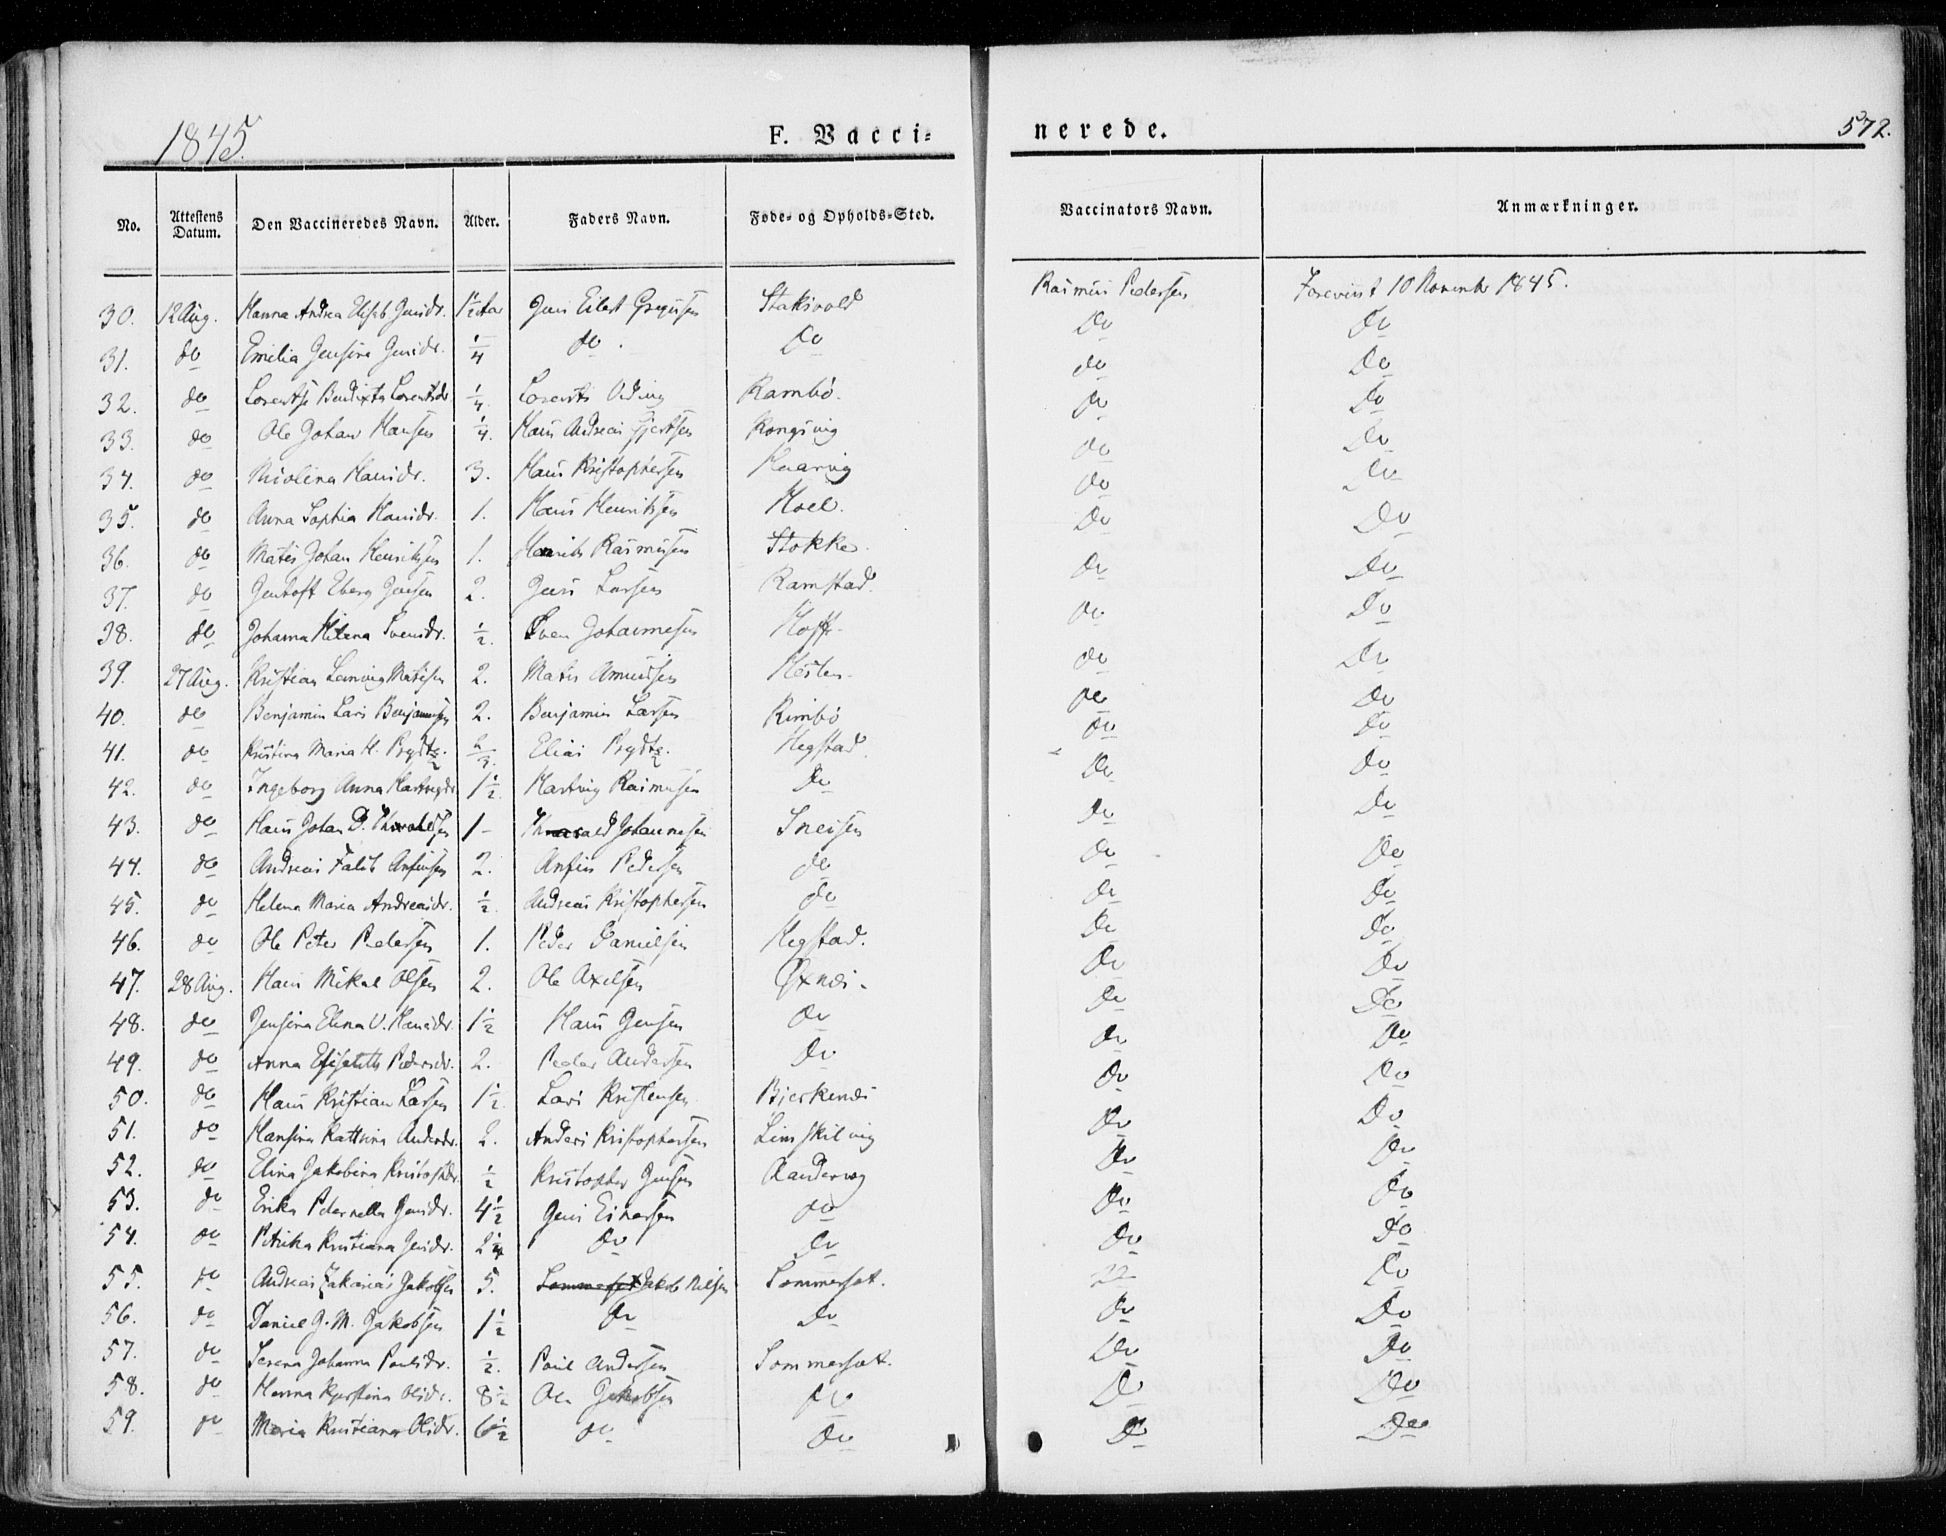 1845.
F. Vacci=
nerede.
572.
No. Attestens Datum. Den Vaccineredes Navn. Alder. Faders Navn. Føde- og Opholds-Sted. Vaccinators Navn. Anmærkninger.
30. 12 Aug. Hanna Andrea Elisb. Jensdr. 1½ Aar Jens Eilert Staksvold Rasmus Pedersen Foreviist 10 November 1845.
31. do Emilia Jensina Jensdr. ¼ do. Do Do Do
32. do Lorentse Bendixta Lorentsdr. ¼ Lorents Rambø. do Do
33. do Ole Johan Hansen ¼. Hans Andreas Gjertsen Kongsvig do Do
34. do Nicolina Hansdr. 3. Hans Kristophersen Haarvig do Do
35. do Anna Sophia Hansdr. 1. Hans Henriksen Hoel. do Do
36. do Mates Johan Henriksen 1. Henrik Rasmussen Stokke. Do Do
37. do Jentoft Eberg Jensen 2. Jens Larsen Ramstad. Do Do
38. do Johanna Helena Svensdr. ½. Sven Johannesen Hoff. do Do
39. 27 Aug. Kristian Matisen 2. Mates Amundsen do Do
40. do Benjamin Lars Benjaminsen 2. Benjamin Larsen Rimbø do Do
41. do Kristina Maria H. Prydtz. ⅔. Elias Prydtz. Hegstad do Do
42. do Ingeborg Anna Hartvigdr. 1½. Hartvig Rasmusen Do Do Do
43. do Hans Johan D. Thorvaldsen 1 - Thorvald Johannesen Sneisen Do Do
44. do Andreas Falck Anfinsen 2. Anfin Pedersen do Do Do
45. do Helena Maria Andreasdr. ½. Andreas Kristophersen do Do Do
46. do Ole Peter Pedersen 1. Peder Danielsen Hegstad. Do Do
47. 28 Aug. Hans Mikal Olsen 2. Ole Axelsen Øxnæs. Do Do
48. do Jensina Elena U. Hansdr. 1½ Hans Jensen Do Do Do
49. do Anna Elisabeth Pedersdr. 2. Peder Andersen Do Do Do
50. do Hans Kristian Larsen 1½. Lars Kristensen Bjerkenæs Do Do
51. do Hansina Kattrina Andersdr. 2. Anders Kristophersen Do Do
52. do Elina Jakobina Kristophdr. ½ Kristopher Jensen Do Do
53. do Erika Pedernella Jensdr. 4½ Jens Einersen do Do Do
54. do Petrika Kristiana Jensdr. 2¼ Do Do Do Do
55. do Andreas Zakarias Jakobsen 5. Sommerset Jakob Nilsen Sommerset. Do
56. do Daniel J. M. Jakobsen 1½ Do Do Do Do
57. do Serena Johanna Paulsdr. ½. Paul Andersen Sommerset. Do Do
58. do Hanna Kjerstina Olsdr. 8½ Ole Jakobsen Do Do Do
59. do Maria Kristiana Olsdr. 6½ do Do Do Do